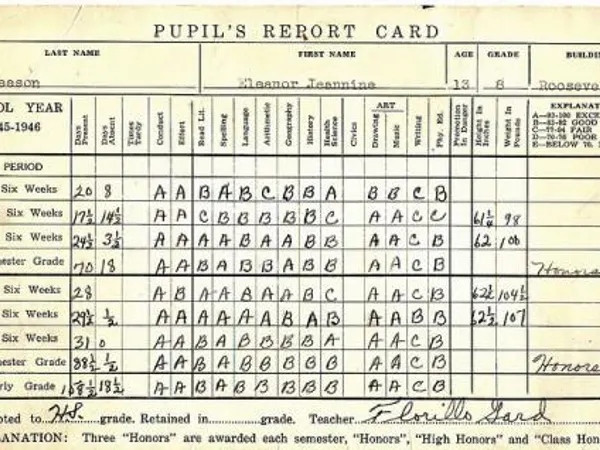 PUPIL'S REPORT CARD
LAST NAME FIRST NAME AGE GRADE BUILDIN
eason Eleanor Jeannine 13 8 Roosev
OL YEAR Days Present Days Absent Times Tardy Conduct Effort Read Lit. Spelling Language Arithmetic Geography History Health Science Civics ART Drawing Music Writing Phy. Ed. Promotion In Danger Height In Inches Weight In Pounds EXPLANAT
45-1946 A—93-100 EXCE
B—85-92 GOOD
C—77-84 FAIR
D—70-76 POOR
E—BELOW 70.
PERIOD
Six Weeks 20 8 A A B A B C B B A B B C B
Six Weeks 17½ 14½ A A C B B B B B C A A C C 61¼ 98
Six Weeks 24½ 3½ A A A A B A A B B A A C B 62 100
ester Grade 70 18 A A B A B B A B B A A C B Honors
Six Weeks 28 A B A A B A A B C A A C B 62½ 104½
Six Weeks 29½ ½ A A A A A A B A B A A B B 62½ 107
Six Weeks 31 0 A A B A B B B B A A A C B
ester Grade 88½ ½ A A B A B B B B B A A C B Honors
rly Grade 158½ 18½ A A B A B B B B B A A C B
oted to H.S. grade. Retained in grade. Teacher Florillo Gard
LANATION: Three "Honors" are awarded each semester, "Honors", "High Honors" and "Class Hon